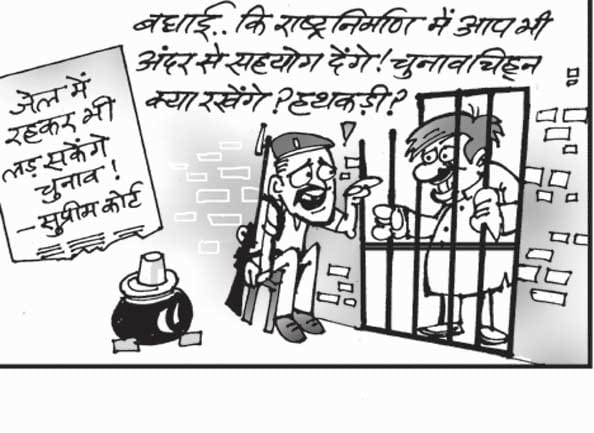 बधाई.. कि राष्ट्रनिर्माण में आप भी
अंदर से सहयोग देंगे! चुनाव चिह्न
क्या रखेंगे? हथकड़ी?
जेल में
रहकर भी
लड़ सकेंगे
चुनाव!
- सुप्रीम कोर्ट